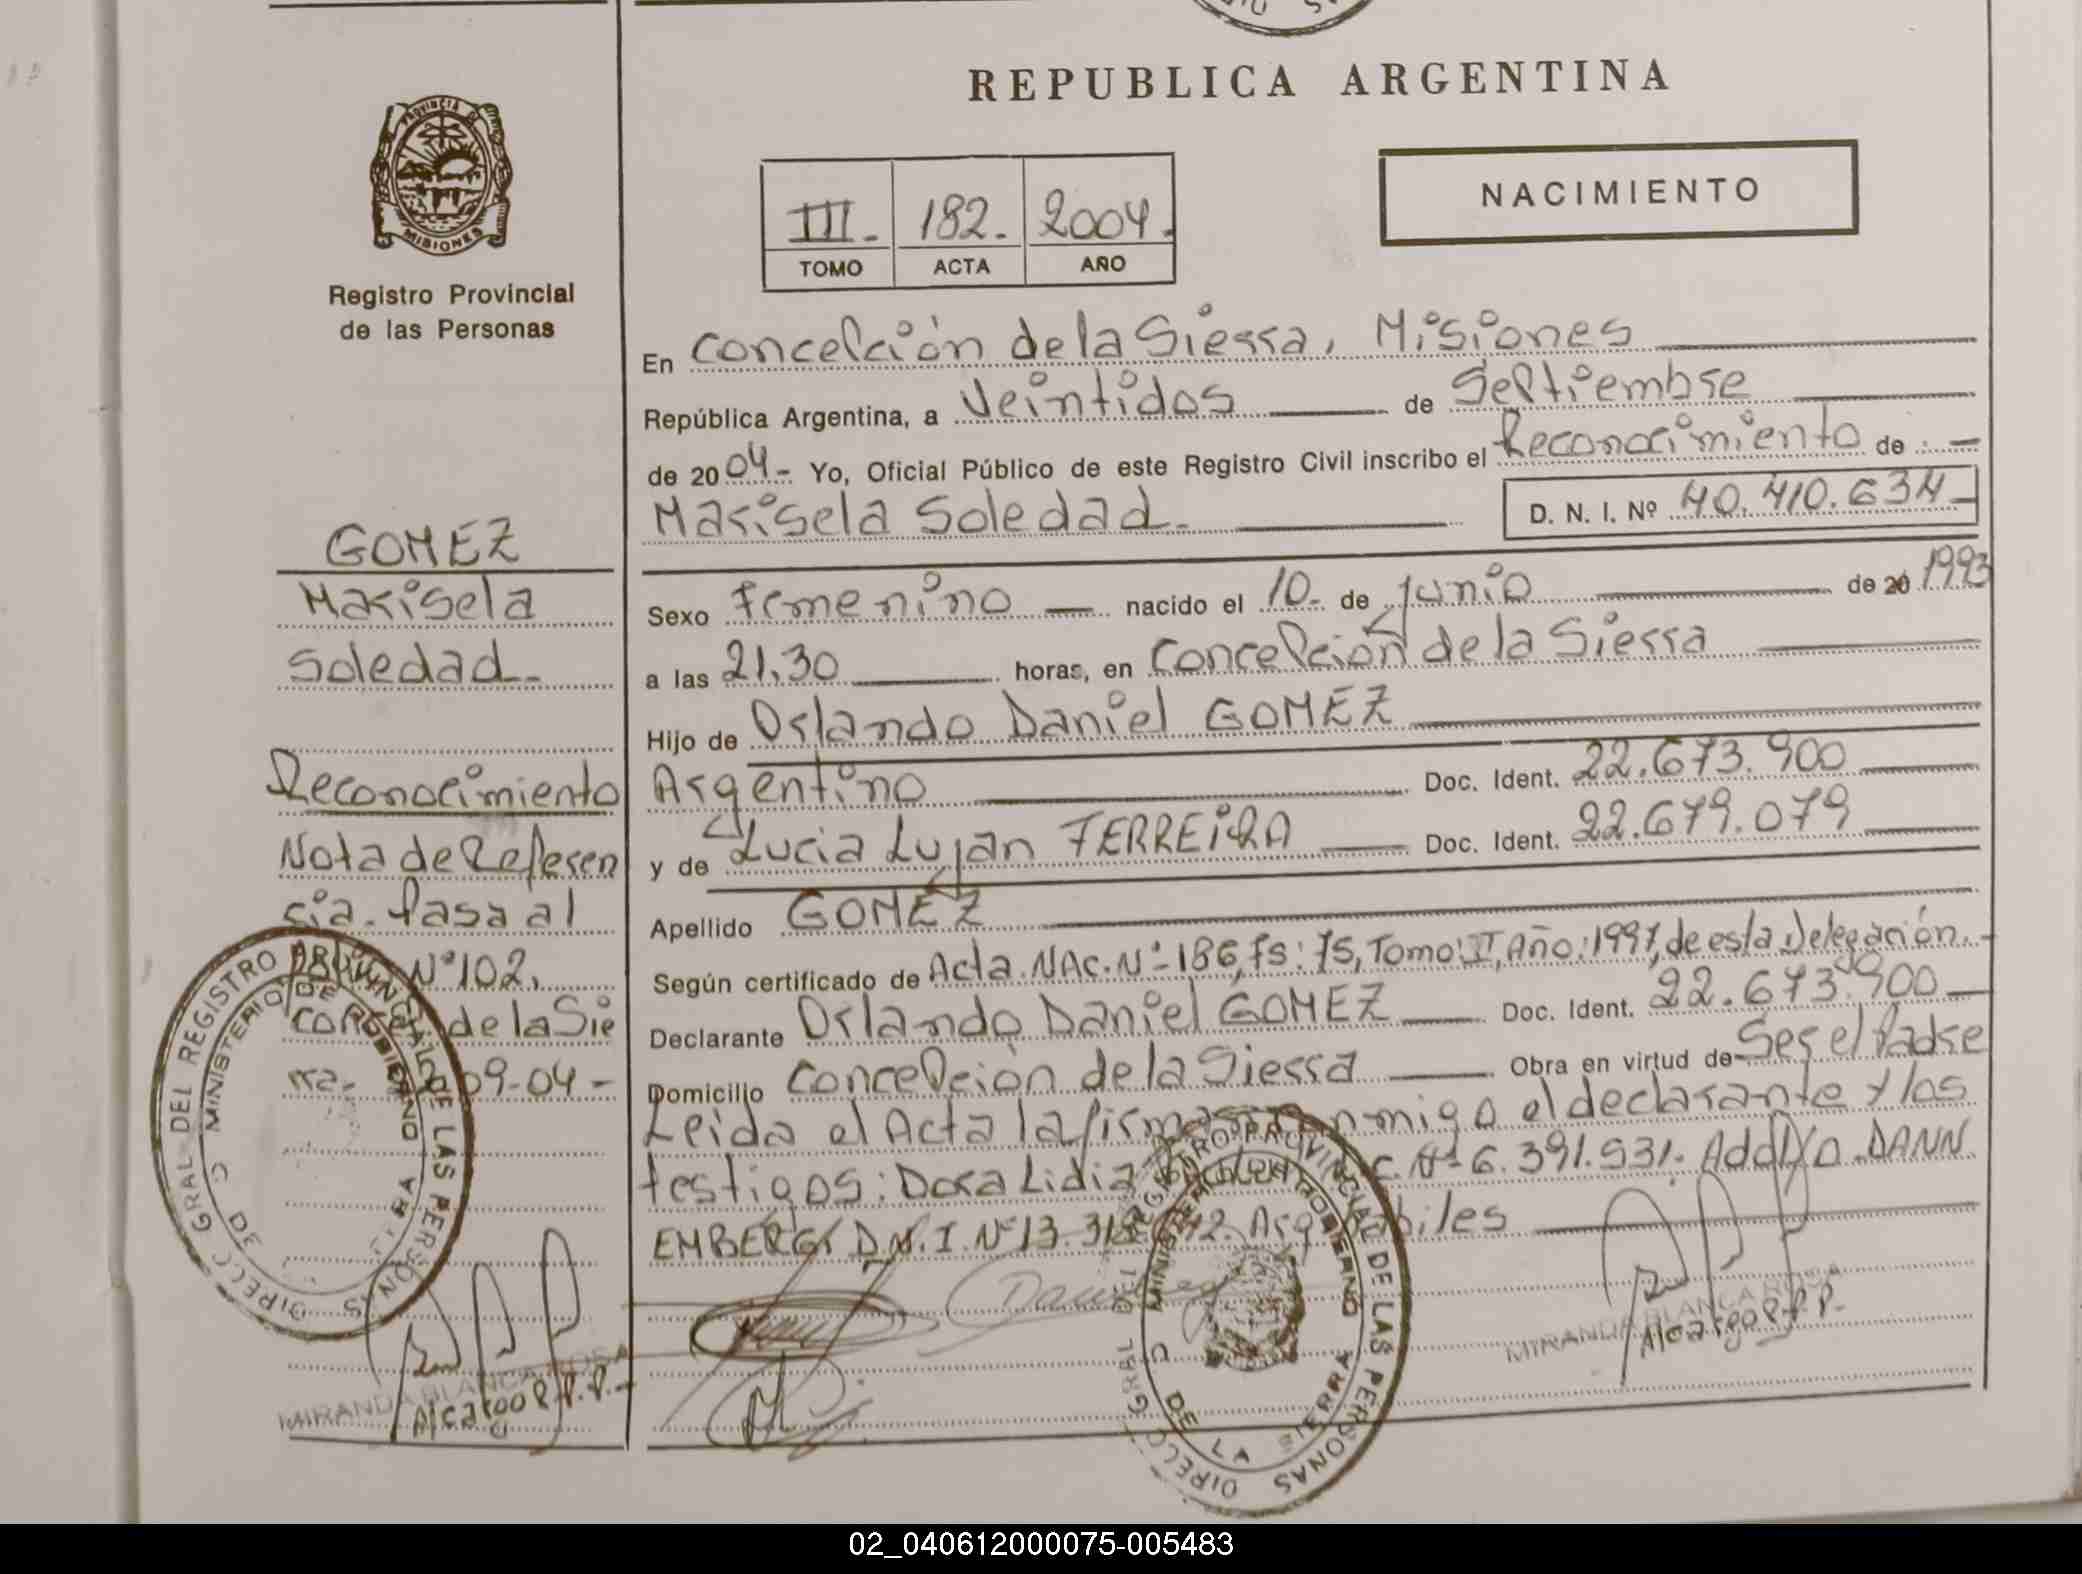 REPUBLICA ARGENTINA
PROVINCIA DE
MISIONES
Registro Provincial
de las Personas
NACIMIENTO
III.- 182.- 2004.-
TOMO ACTA AÑO
En Concepción de la Sierra, Misiones
República Argentina, a Veintidos de Septiembre
de 2004.- Yo, Oficial Público de este Registro Civil inscribo el Reconocimiento de
Marisela Soledad.- D. N. I. Nº 40.410.634-
Sexo Femenino nacido el 10.- de Junio de 20 1993
a las 21,30 horas, en Concepción de la Sierra
Hijo de Orlando Daniel GOMEZ
Argentino Doc. Ident. 22.673.900
y de Lucia Lujan FERREIRA Doc. Ident. 22.679.079
Apellido GOMEZ
Según certificado de Acta.NAc.Nº 186,fs:75,Tomo:II,Año:1997,de esta Delegación.-
Declarante Orlando Daniel GOMEZ Doc. Ident. 22.673.900
Domicilio Concepción de la Sierra Obra en virtud de Ser el Padre
Leida el Acta la firma conmigo el declarante y los
testigos: Dora Lidia C. Nº 6.391.531.- DANN
EMBERG D.N.I. Nº 13. Arg hábiles
GOMEZ
Marisela
Soledad.-
Reconocimiento
Nota de Referen
cia. Pasa al
Nº 102.
de la Sie
rra- 09-04-
DIRECC GRAL DEL REGISTRO PROVINCIAL DE LAS PERSONAS
MINISTERIO DE GOBIERNO
MIRANDA BLANCA ROSA
A/cargo R.P.P.-
DIRECC GRAL DEL REGISTRO PROVINCIAL DE LAS PERSONAS
MINISTERIO DE GOBIERNO
C DE LA SIERRA
MIRANDA BLANCA ROSA
A/cargo R.P.P.-
02_040612000075-005483